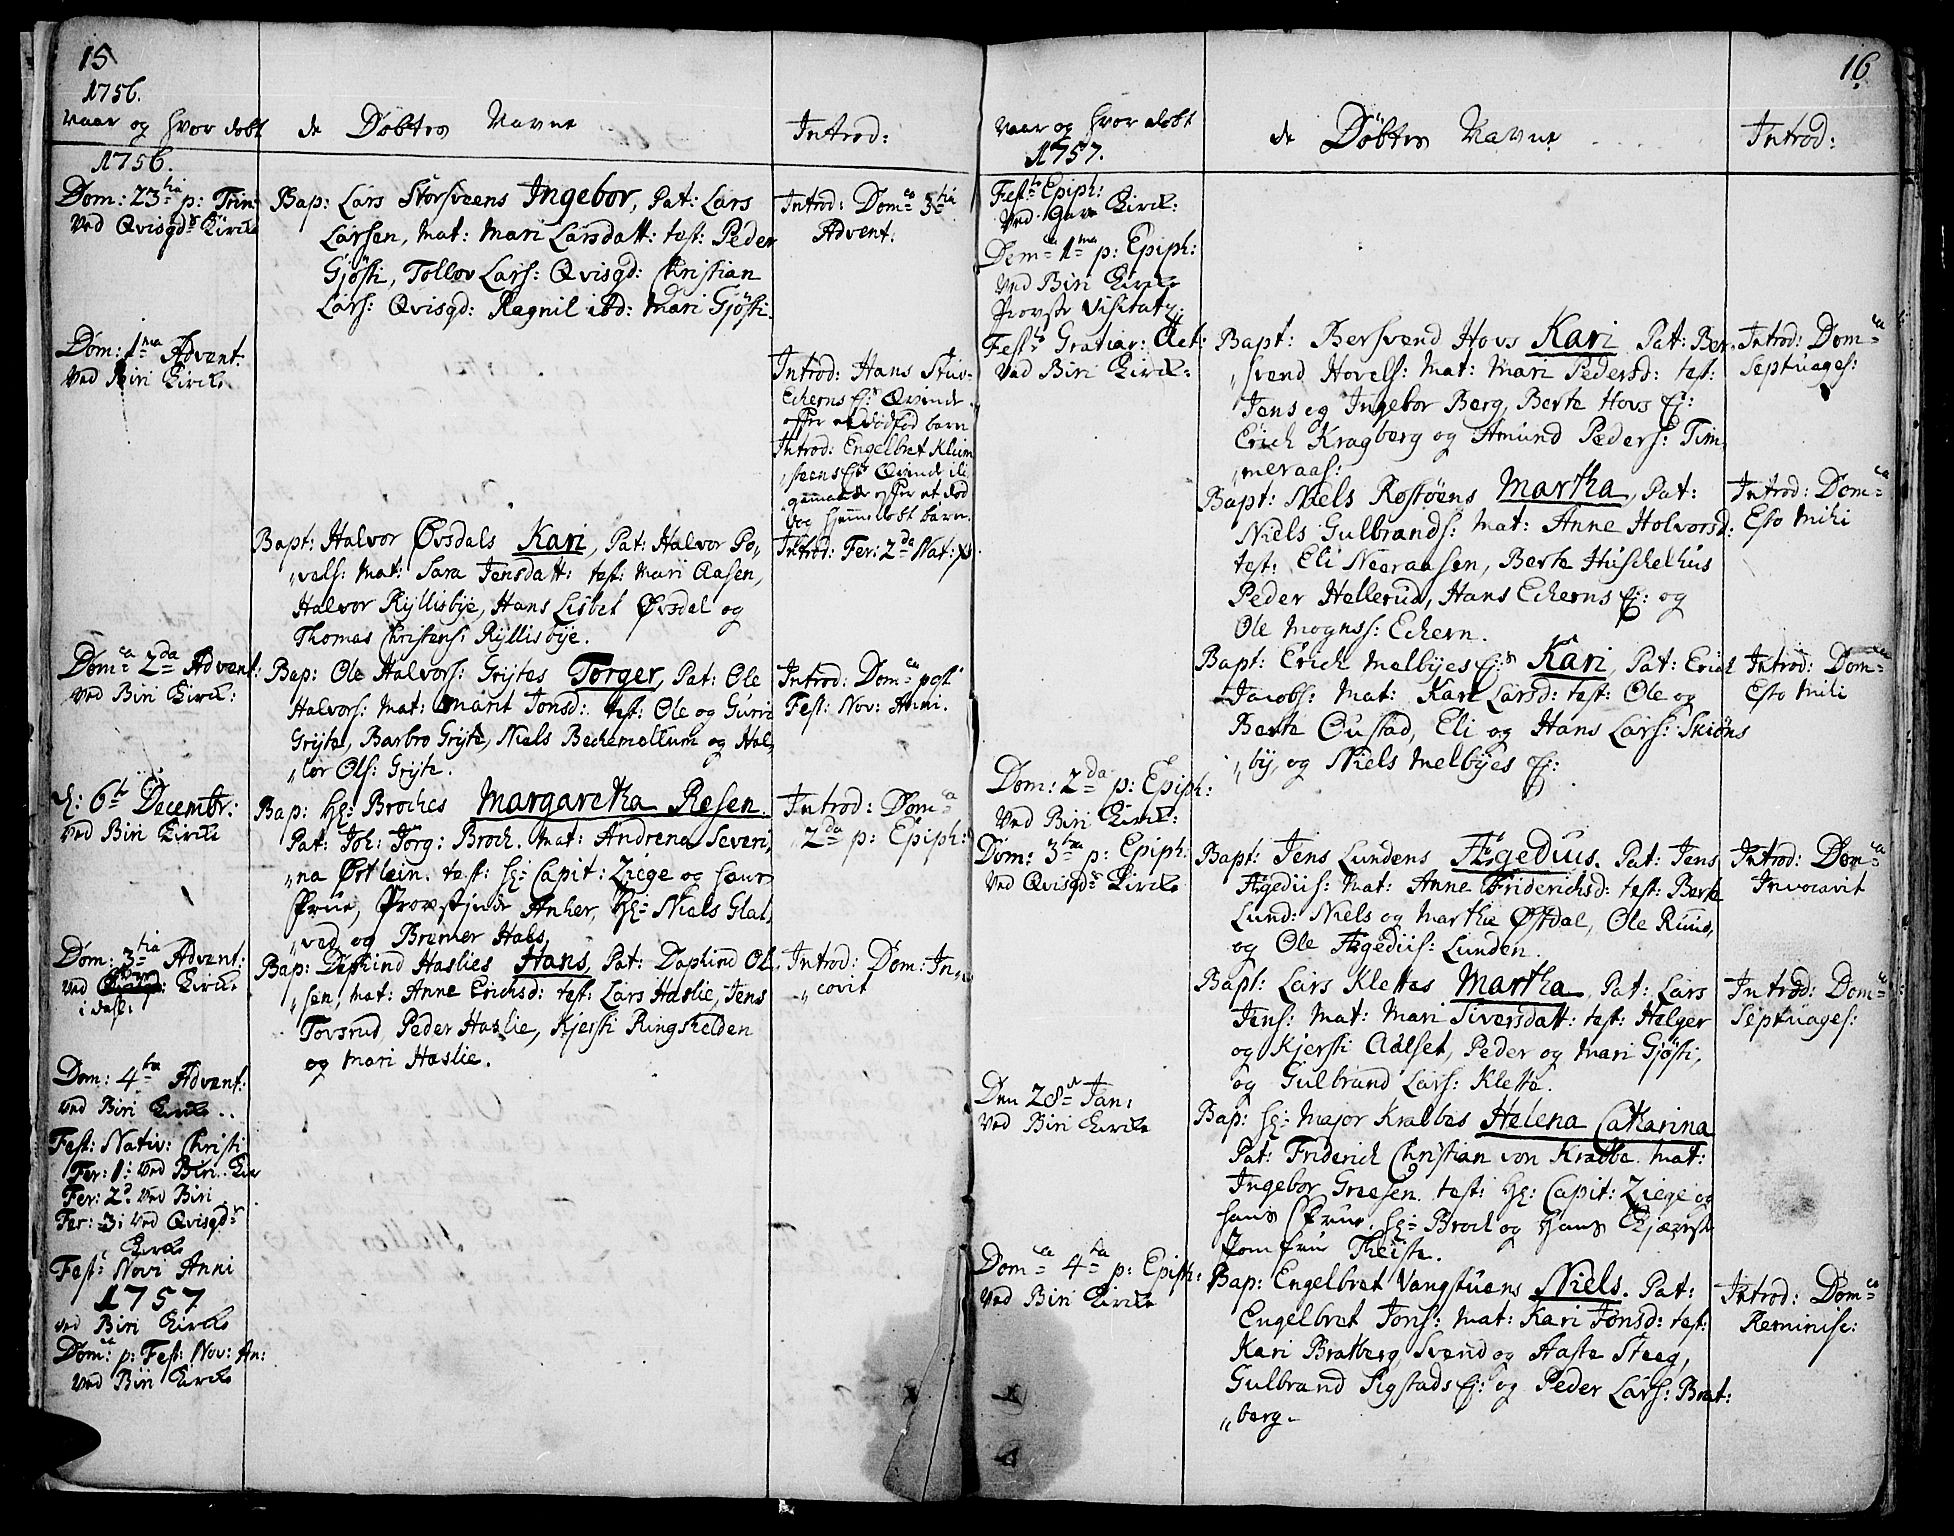 15
1756.
Naar og hvor döbt
de Döbtes Navne
Introd:
1756.
Dom: 23tia p: Trin:
Ved Qvisgds Kircke
Bap: Lars Storsveens Ingebor, Pat: Lars
Larsen, mat: Mari Larsdatt: test: Peder
Gjösti, Tollov Lars: Qvisgd: Christian
Lars: Qvisgd: Ragnil ibd: Mari Gjösti.
Introd: Domca 3tia
Advent:
Dom: 1ma Advent:
Ved Biri Kircke
Introd: Hans Stüv-
Echerns Ej: Qvinde
efter et dödföd barn
Introd: Engelbret Klüm
„seens Ej: Qvinde ili
gemaade efter et död
og hjemmedöbt barn.
Bapt: Halvor Øvsdals Kari, Pat: Halvor Po„
„vels: Mat: Sara Jensdatt: test: Mari Aasen,
Halvor Ryllisbye, Hans Lisbet Øvsdal og
Thomas Christens: Ryllisbye.
Introd: Fer: 2da Nat: Xi.
Domca 2da Advent:
Ved Biri Kirck:
Bap: Ole Halvors: Grytes Torger, Pat: Ole
Halvors: Mat: Marit Jonsd: test: Ole og Gurri
Gryte, Barbro Gryte, Niels Bechemellum og Hal„
„lor Ols: Gryte.
Introd: Domca post
Fest: Nov: Anni.
d: 6te Decembr:
Ved Biri Kircke
Bap: Hr: Broches Margaretha Resen.
Pat: Joh: Jorg: Broch. Mat: Andrena Severi„
„na Østlein. test: Hr: Capit: Ziege og hans
Frue, Provstinde Anker, Hr: Niels Glat„
„ved og Bremer Hals.
Introd: Domca
2da p: Epiph:
Dom: 3tia Advent:
Ved Kircke
Bap: Daphind Haslies Hans, Pat: Daphind Ol„
„sen, mat: Anne Erichsd: test: Lars Haslie, Jens
Tovsrud, Peder Haslie, Kjersti Ringshelden
og Mari Haslie.
Introd: Dom: In„
„covit
Dom: 4ta Advent:
Ved Biri Kircke.
Fest: Nativ: Christi
Fer: 1: ved Biri Kir
Fer: 2d. ved Biri
Fer: 3: ved Qvisgds
Kircke
Fest: Novi Anni
1757
ved Biri Kircke
Domca p: Fest: Nov: An:
Ved Biri Kircke
16
Naar og hvor döbt
1757.
de Döbtes Navne
Introd:
Festo Epiph:
Ved Kirck:
Domca 1ma p: Epiph:
Ved Biri Kircke
Provste Visitatz
Festo Gratiar: Act:
Ved Biri Kirck:
Bapt: Bersvend Hovs Kari Pat: Ber„
„svend Hovels: Mat: Mari Pedersd: test:
Jens og Ingebor Berg, Berte Hovs Ej:
Erich Kragberg og Amund Peders: Tim„
„meraas:
Introd: Domca
Septuages:
Bapt: Niels Rostöens Martha, Pat:
Niels Gulbrands: Mat: Anne Holvorsd:
test: Eli Neeraasen, Berte Huschelhus
Peder Hellerud, Hans Echerns Ej: og
Ole Mognss: Echern.
Introd: Domca
Esto Mihi
Bapt: Erich Melbyes Ej: Kari, Pat: Erich
Jacobs: Mat: Kari Larsd: test: Ole og
Berte Oustad, Eli og Hans Lars: Skiöns
„by, og Niels Melbyes Ej:
Introd: Domca
Esto Mihi
Dom: 2da p: Epiph:
Ved Biri Kirck:
Dom: 3tia p: Epiph:
Ved Qvisgds Kircke
Bapt: Jens Lundens Ægedius. Pat: Jens
Ægedii: Mat: Anne Friderichsd: test: Berte
Lund: Niels og Marthe Østdal, Ole Ruud,
og Ole Ægedii: Lunden.
Introd: Domca
Invocavit
Bapt: Lars Klettes Martha, Pat: Lars
Jens: Mat: Mari Siversdatt: test: Helger
og Kjersti Aalset, Peder og Mari Gjösti,
og Gulbrand Lars: Klette.
Introd: Domca
Septuages:
Den 28d Jan:
Ved Biri Kircke
Bap: Hr: Major Krabbes Helena Catharina
Pat: Friderich Christian von Krabbe. Mat:
Ingebor Greesen. test: Hr: Capit: Ziege og
hans Frue, Hr: Broch og Hans Kjæreste
Jomfrue Theiste.
Domca 4ta p: Epiph:
Ved Biri Kircke
Bap: Engelbret Vangstuens Niels. Pat:
Engelbret Jons: Mat: Kari Jonsd: test:
Kari Bratberg, Svend og Aaste Steeg,
Gulbrand Sigstads Ej: og Peder Lars: Brat:
„berg.
Introd: Domca
Reminisc: